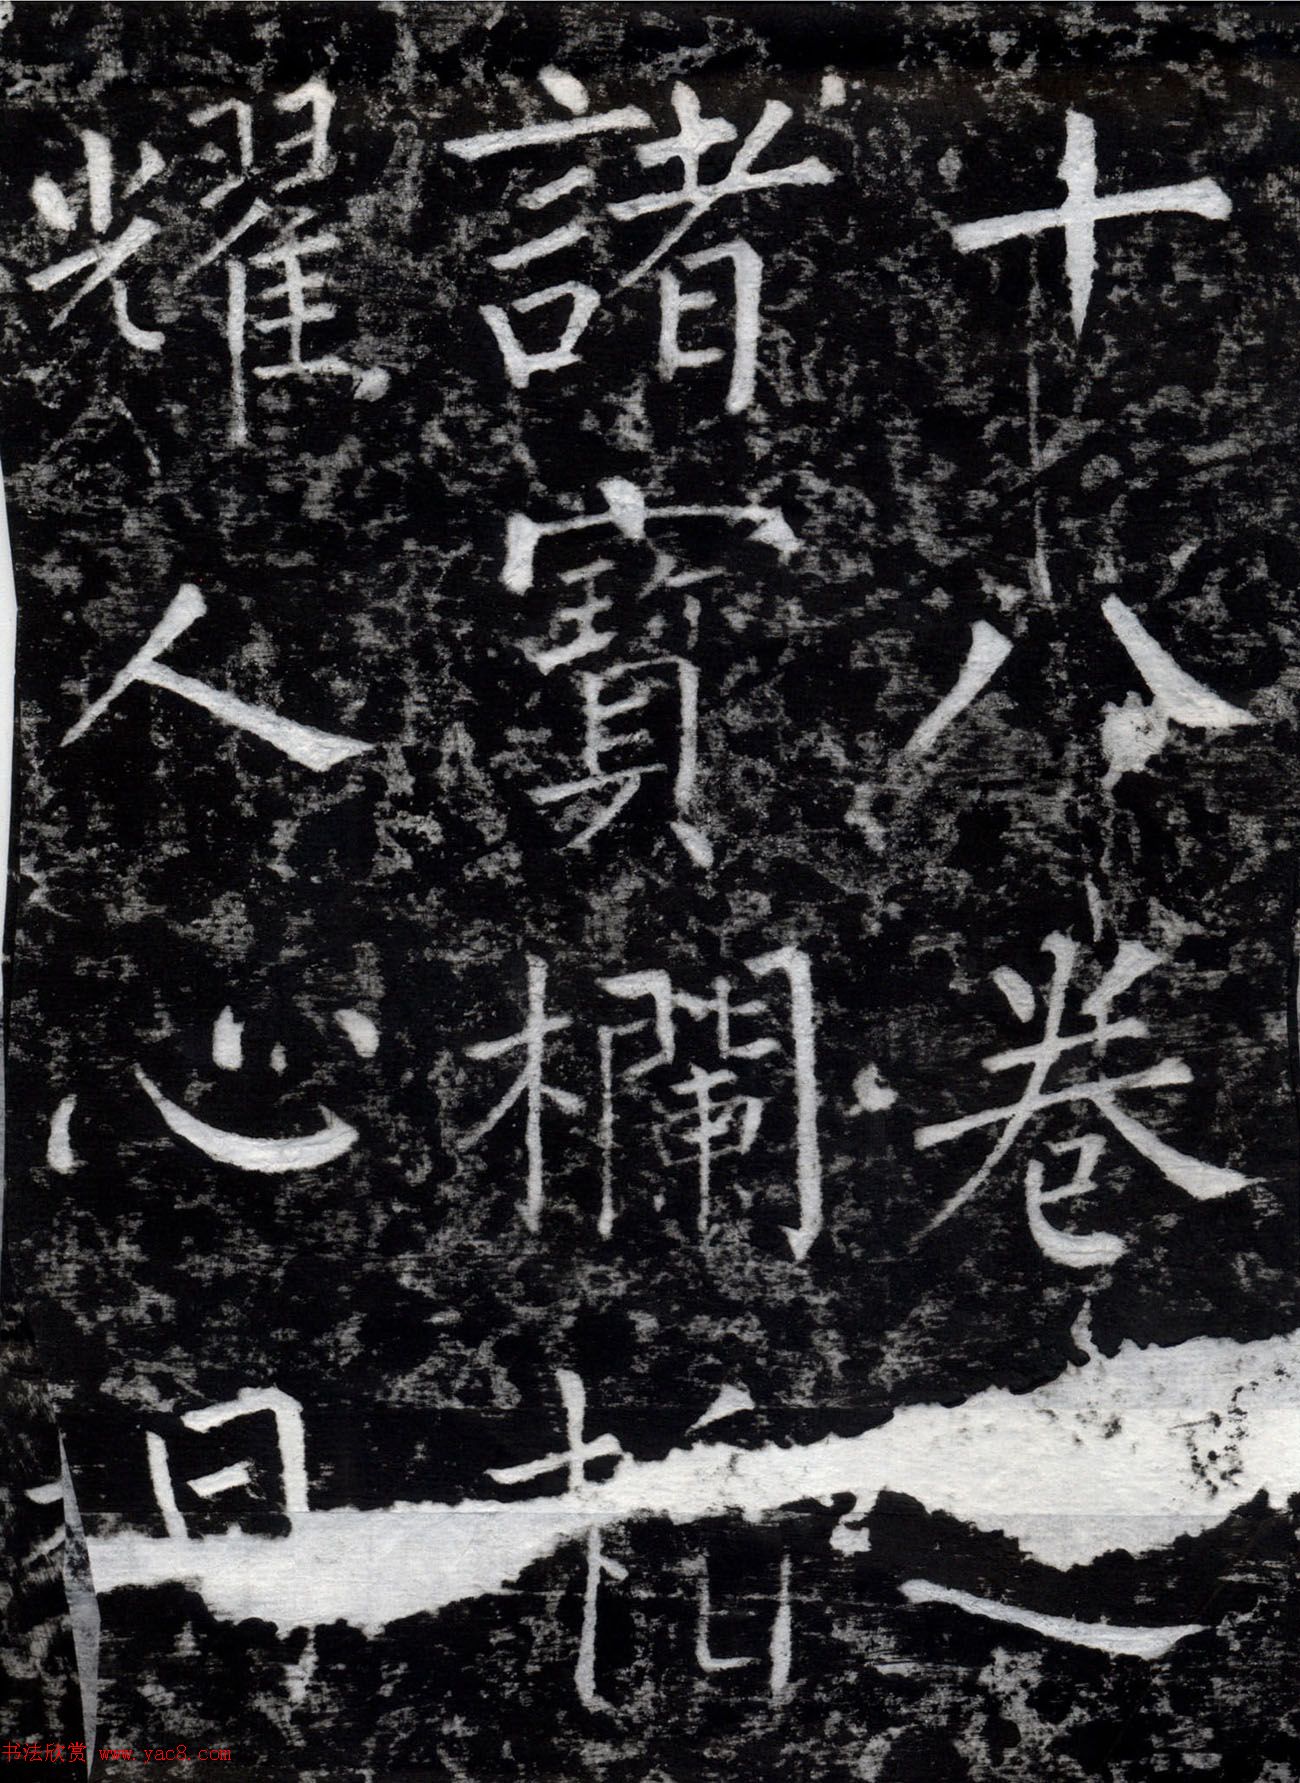 十八卷
諸寶欄
耀人心目
书法欣赏 www.yac8.com